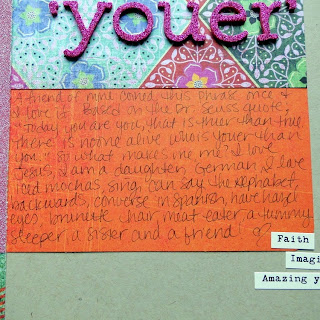 "youer"
A friend of mine coined this phrase once &
I love it. Based on the Dr. Seuss quote,
"Today you are you, that is truer than true
there is no one alive who is youer than
you." So what makes me me? I love
Jesus, I am a daughter, German, I love
iced mochas, sing, can say the alphabet
backwards, converse in spanish, have hazel
eyes, brunette hair, meat eater, a tummy
sleeper a sister and a friend!
Faith
Imagi
Amazing y